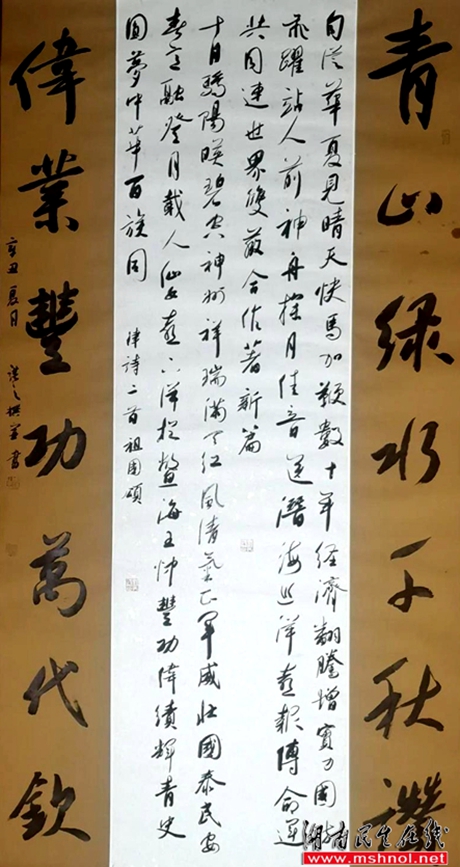 青山绿水千秋
自從華夏見晴天快馬加鞭數十年經濟翻騰增實力國
躍站人前神舟探月佳音送潛海巡洋喜報傳命運
共同連世界雙贏合作著新篇
十月驕陽暎碧空神州祥瑞滿天紅風清氣正軍威壯國泰民安
春意融登月載人仙女喜下洋捉鱉海王忡豐功偉績輝青史
圓夢中華百族同 律詩二首祖國頌
偉業豐功萬代欽
辛丑夏月 撰並書
湖南民生在线
www.mshnol.net